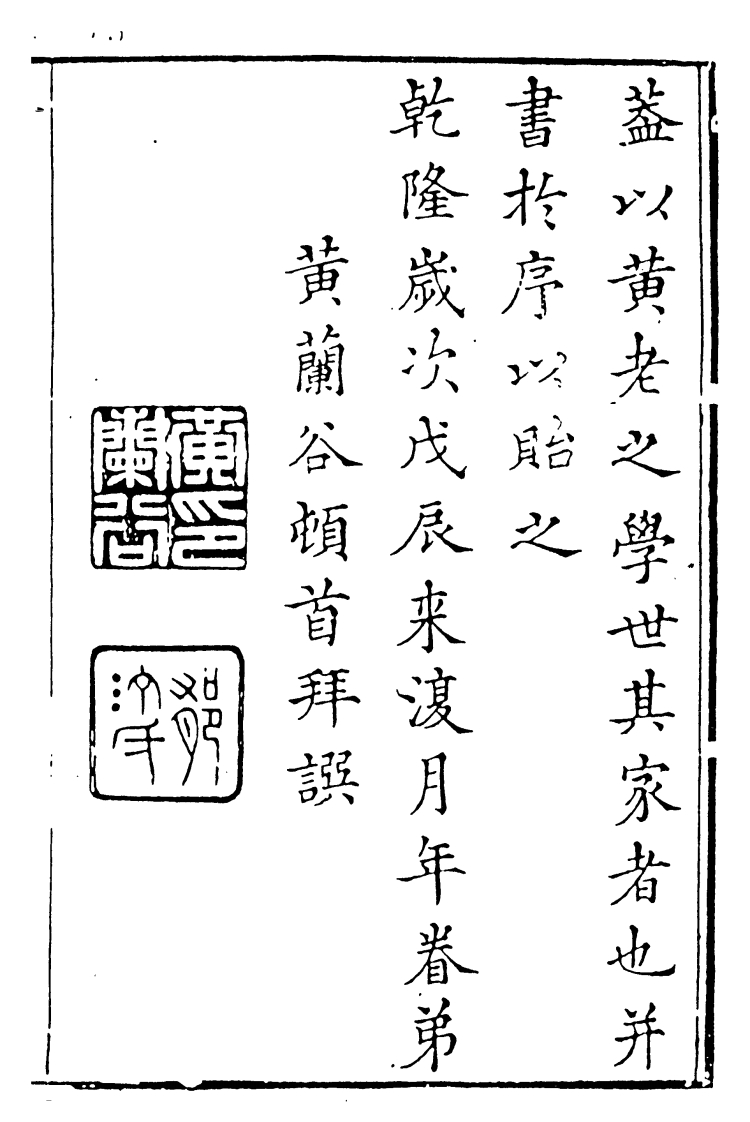 葢以黄老之學世其家者也并
書於序以貽之
乾隆歲次戊辰来復月年眷弟
黄蘭谷頓首拜譔
黄印蘭谷